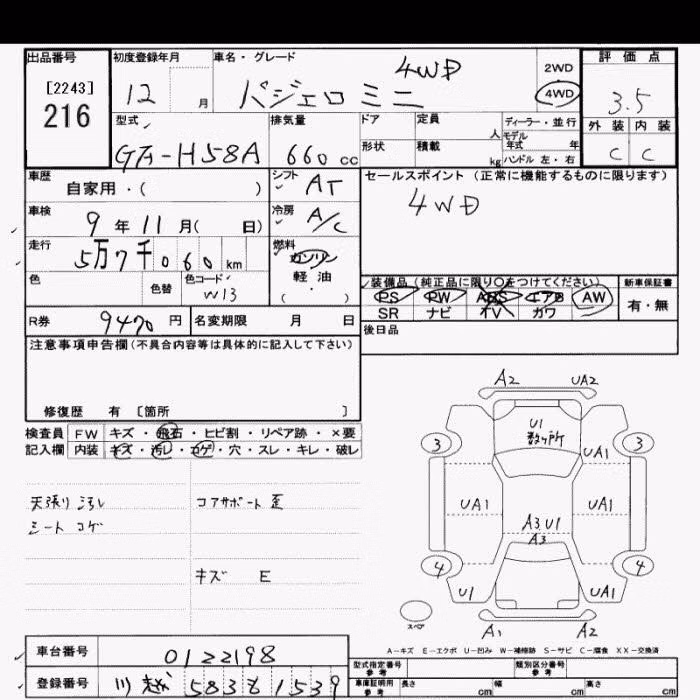 出品番号 初度登録年月 車名・グレード 評価点
[2243] 4WD 2WD
216 12 月 パジェロ ミニ 4WD 3.5
型式 排気量 ドア 定員 人 ディーラー・並行 外装 内装
モデル年式 年
GF-H58A 660 cc 形状 積載 kg ハンドル 左・右 C C
車歴 自家用・( ) シフト AT セールスポイント(正常に機能するものに限ります)
車検 9年11月( 日) 冷房 A/C 4WD
走行 5万7千060km 燃料 ガソリン
色 色替 色コード W13 軽・油 ( )
装備品(純正品に限り○をつけてください) 新車保証書
PS PW ABS エアB AW 有・無
SR ナビ TV カワ
R券 9470円 名変期限 月 日 後日品
注意事項申告欄(不具合内容等は具体的に記入して下さい)
修復歴 有 [箇所 ]
検査員 FW キズ・飛石・ヒビ割・リペア跡・×要
記入欄 内装 キズ・汚レ・コゲ・穴・スレ・キレ・破レ
天張り汚レ コアサポート歪
シート コゲ
キズ E
A2 UA2
U1
3 数ヶ所 UA1 3
UA1 UA1
A3 U1
A3
4 4
U1 UA1
スペア A1 A2
A-キズ E-エクボ U-凹み W-補修跡 S-サビ C-腐食 XX-交換済
車台番号 0122198
型式指定番号 参考 類別区分番号 参考
登録番号 川越 583 る 1539
車庫証明用 参考 長さ cm 幅 cm 高さ cm